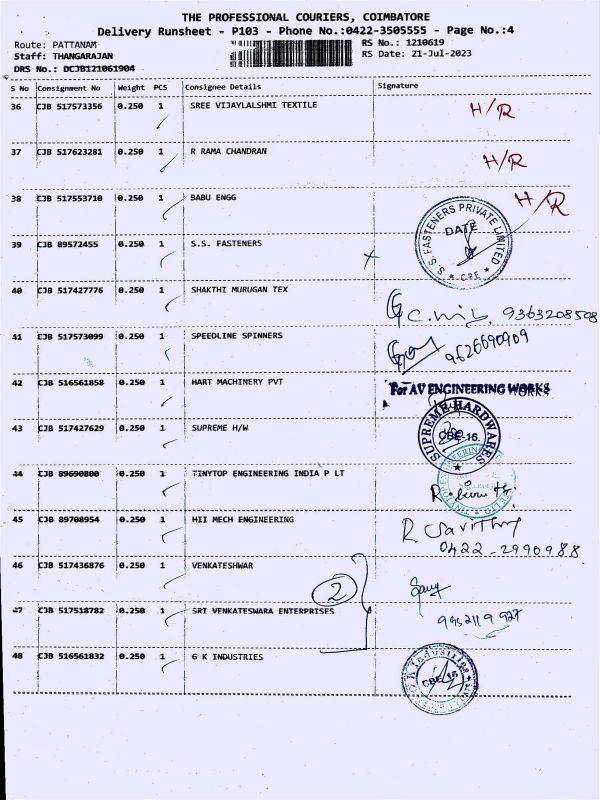 THE PROFESSIONAL COURIERS, COIMBATORE
Delivery Runsheet - P103 - Phone No.:0422-3505555 - Page No.:4
Route: PATTANAM
RS No.: 1210619
Staff: THANGARAJAN
RS Date: 21-Jul-2023
DRS No.: DCJB121061904
S No Consignment No Weight PCS Consignee Details Signature
36 CJB 517573356 0.250 1 SREE VIJAYLALSHMI TEXTILE H/R
37 CJB 517623281 0.250 1 R RAMA CHANDRAN H/R
38 CJB 517553710 0.250 1 BABU ENGG H/R
S. S. FASTENERS PRIVATE LIMITED
DATE
CBE
39 CJB 89572455 0.250 1 S.S. FASTENERS
40 CJB 517427776 0.250 1 SHAKTHI MURUGAN TEX
9363208508
41 CJB 517573099 0.250 1 SPEEDLINE SPINNERS
9626690909
42 CJB 516561858 0.250 1 HART MACHINERY PVT
For AV ENGINEERING WORKS
43 CJB 517427629 0.250 1 SUPREME H/W
SUPREME HARDWARES
CBE-16.
44 CJB 89690880 0.250 1 TINYTOP ENGINEERING INDIA P LT
45 CJB 89708954 0.250 1 HII MECH ENGINEERING
R Savithry
0422-2990988
46 CJB 517436876 0.250 1 VENKATESHWAR
2
47 CJB 517518782 0.250 1 SRI VENKATESWARA ENTERPRISES
9952119927
48 CJB 516561832 0.250 1 G K INDUSTRIES
G K Industries
CBE-16